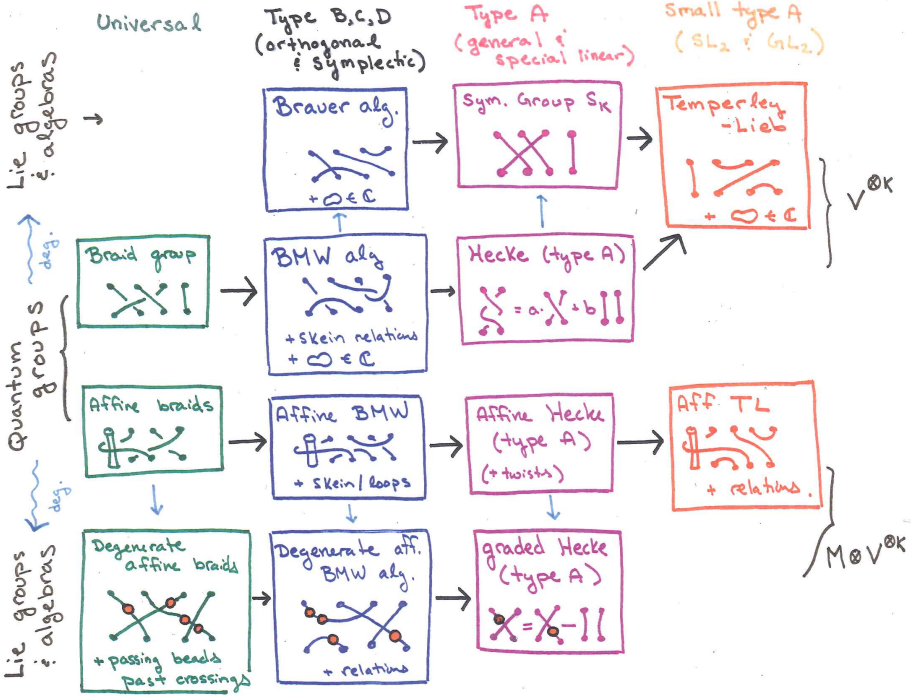 Universal
Type B,C,D
(orthogonal
& symplectic)
Type A
(general &
special linear)
Small type A
(SL₂ & GL₂)
Lie groups
& algebras
Brauer alg.
+ ⬭ ∈ ℂ
Sym. Group Sₖ
Temperley
-Lieb
+ ⬭ ∈ ℂ
V^⊗k
deg.
Quantum
groups
Braid group
BMW alg
+ skein relations
+ ⬭ ∈ ℂ
Hecke (type A)
= a· + b
Affine braids
Affine BMW
+ skein/loops
Affine Hecke
(type A)
(+ twists)
Aff TL
+ relations.
deg.
M⊗V^⊗k
Lie groups
& algebras
Degenerate
affine braids
+ passing beads
past crossings
Degenerate aff.
BMW alg.
+ relations
graded Hecke
(type A)
= −